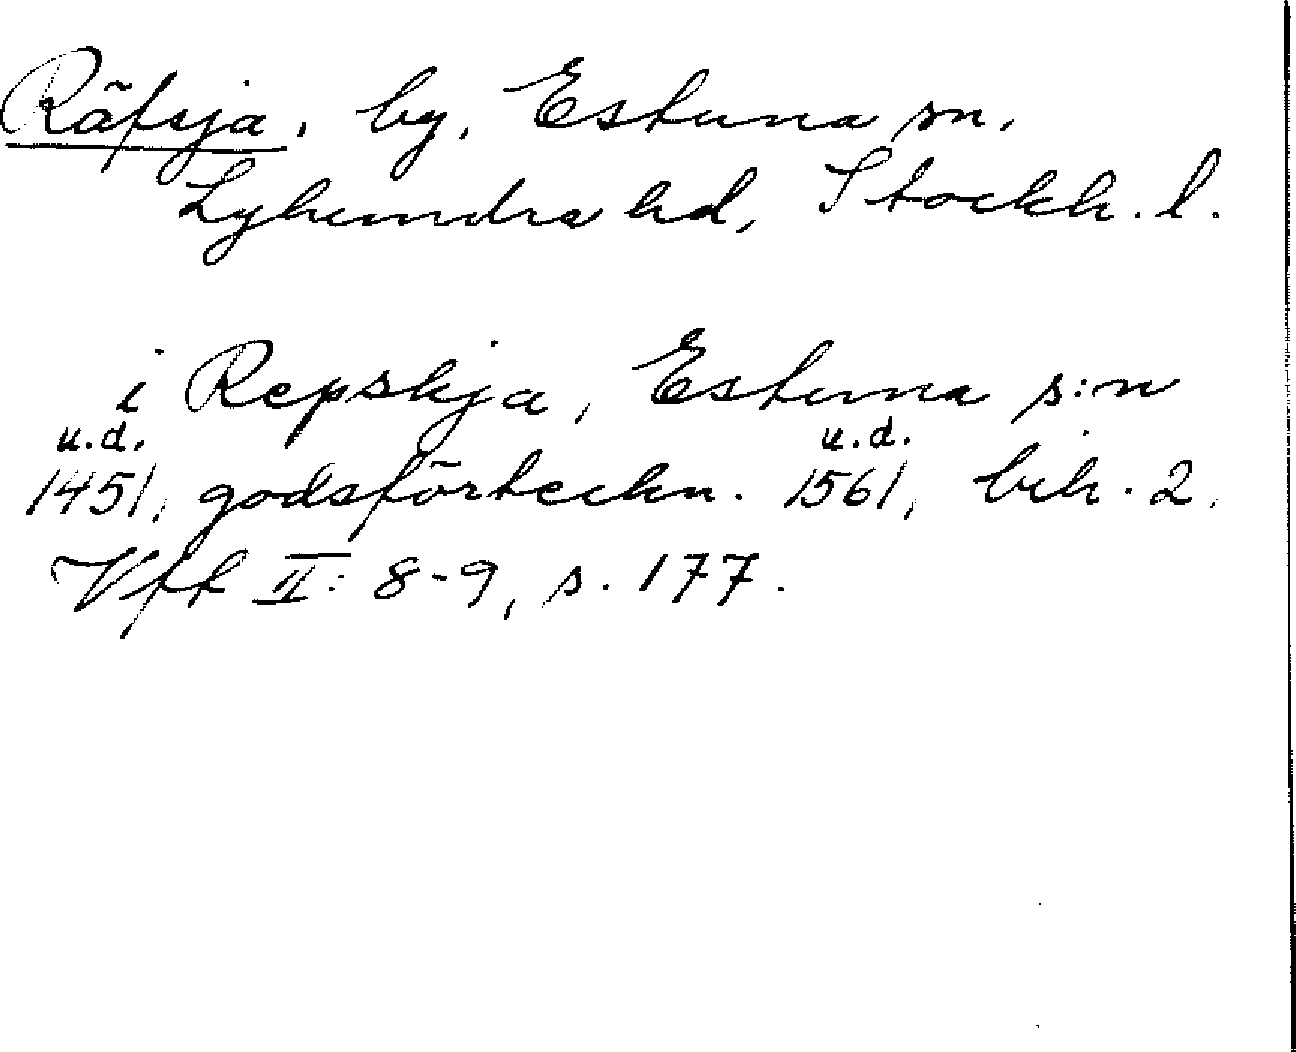 Räfsja, by, Estuna sn,
Lyhundra hd, Stockh. l.
i Repskja, Estuna s:n
u.d. u.d.
1451, godsförteckn. 1561, bih. 2,
Vff II: 8-9, s. 177.